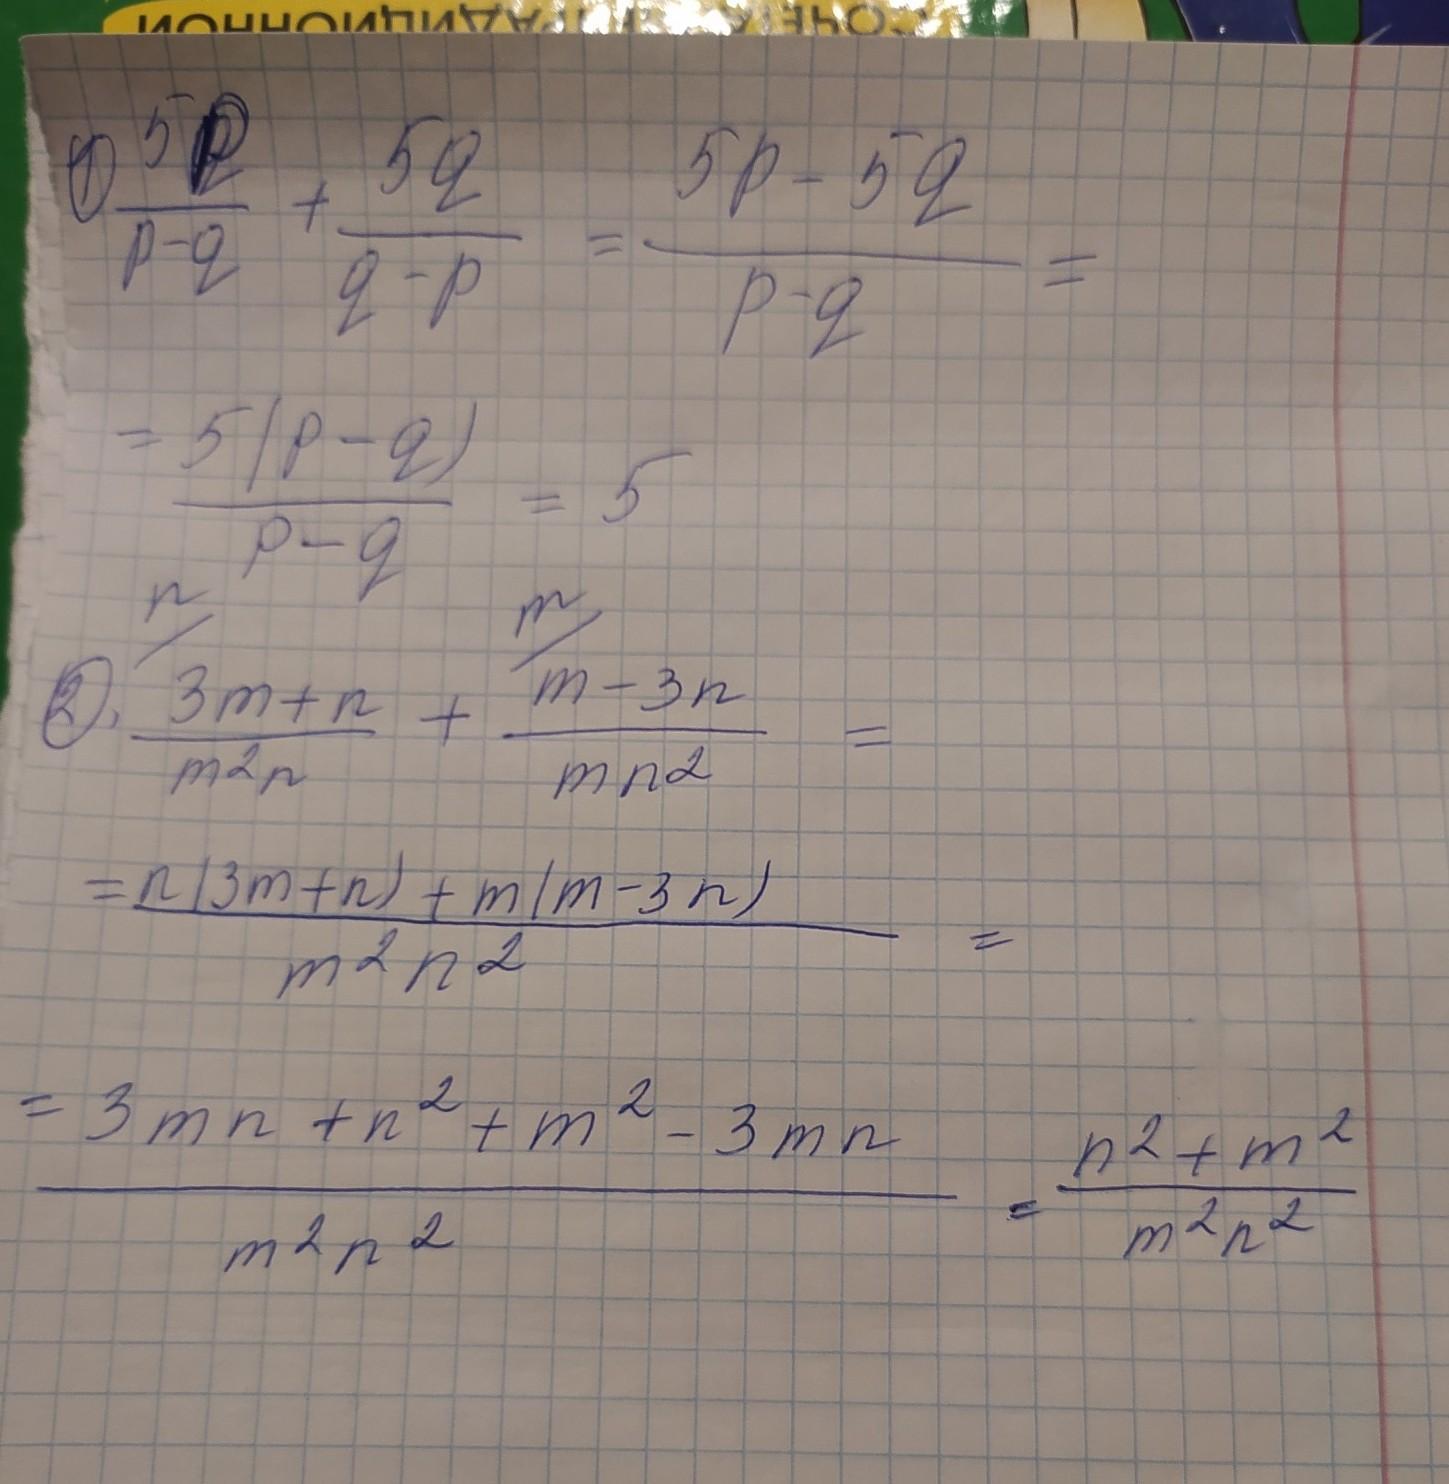 ① 5p/(p-q) + 5q/(q-p) = (5p-5q)/(p-q) =
= 5(p-q)/(p-q) = 5
n/ m/
②. (3m+n)/(m²n) + (m-3n)/(mn²) =
= (n(3m+n)+m(m-3n))/(m²n²) =
= (3mn+n²+m²-3mn)/(m²n²) = (n²+m²)/(m²n²)